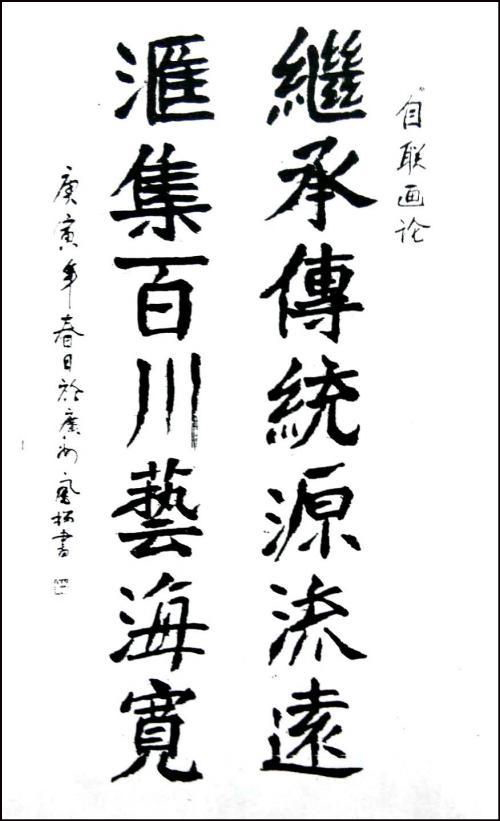 自联画论
繼承傳統源流遠
滙集百川藝海寬
庚寅年春日於廣州 書